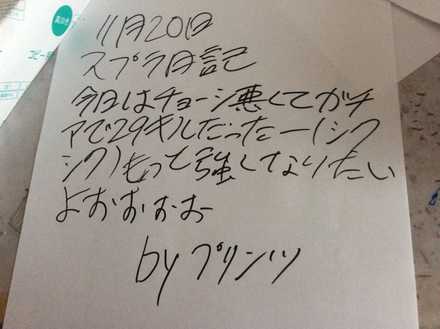 11月20日
スプラ日記
今日はチョーシ悪くてガチ
アで29キルだったー(シク
シク)もっと強くなりたい
よおおぉぉー
by プリンツ